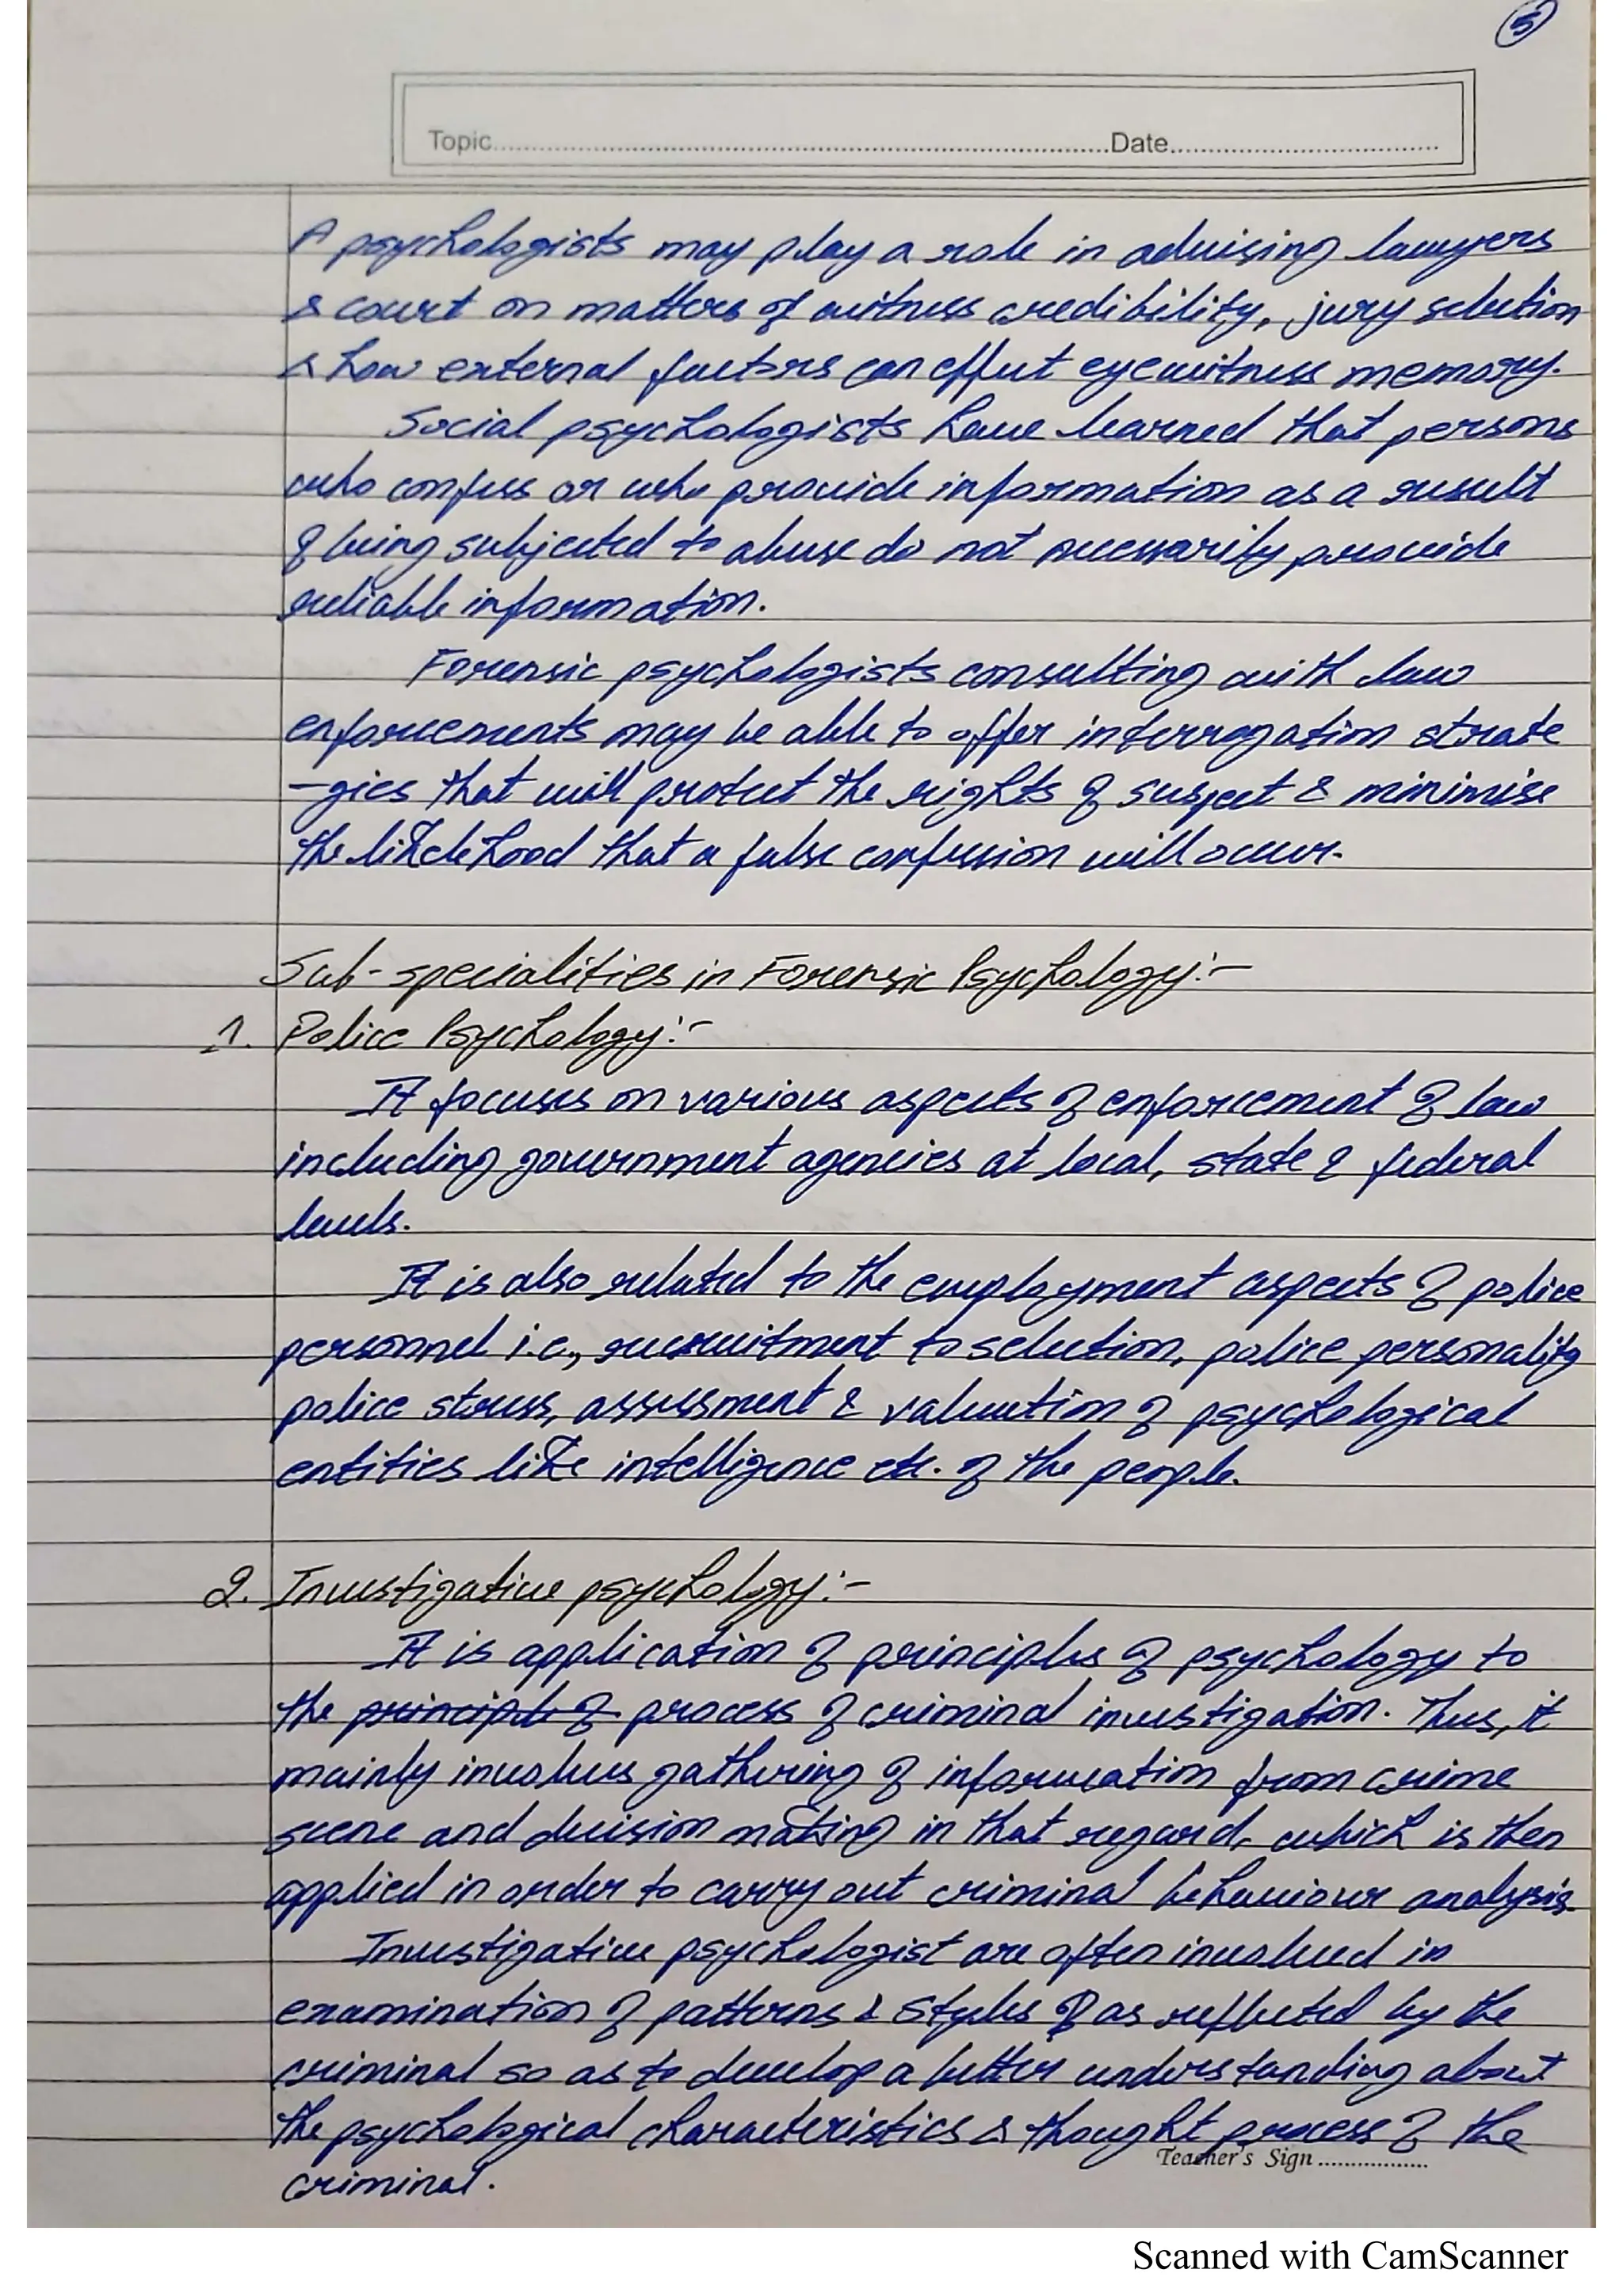 5
Topic..........Date..........
A psychologists may play a role in advising lawyers
& court on matters of witness credibility, jury selection
& how external factors can effect eyewitness memory.
Social psychologists have learned that persons
who confess or who provide information as a result
of being subjected to abuse do not necessarily provide
reliable information.
Forensic psychologists consulting with law
enforcements may be able to offer interrogation strate
-gies that will protect the rights of suspect & minimise
the likelehood that a false confession will occur.
Sub-specialities in Forensic Psychology:-
1. Police Psychology:-
It focuses on various aspects of enforcement of law
including government agencies at local, state & federal
levels.
It is also related to the employment aspects of police
personnel i.e., recruitment to selection, police personality
police stress, assessment & valuation of psychological
entities like intelligence etc. of the people.
2. Investigative psychology:-
It is application of principles of psychology to
the principle of process of criminal investigation. Thus, it
mainly involves gathering of information from crime
scene and decision making in that regard, which is then
applied in order to carry out criminal behaviour analysis.
Investigative psychologist are often involved in
examination of patterns & styles as reflected by the
criminal so as to develop a better understanding about
the psychological characteristics & thought process of the
Teacher's Sign..........
criminal.
Scanned with CamScanner